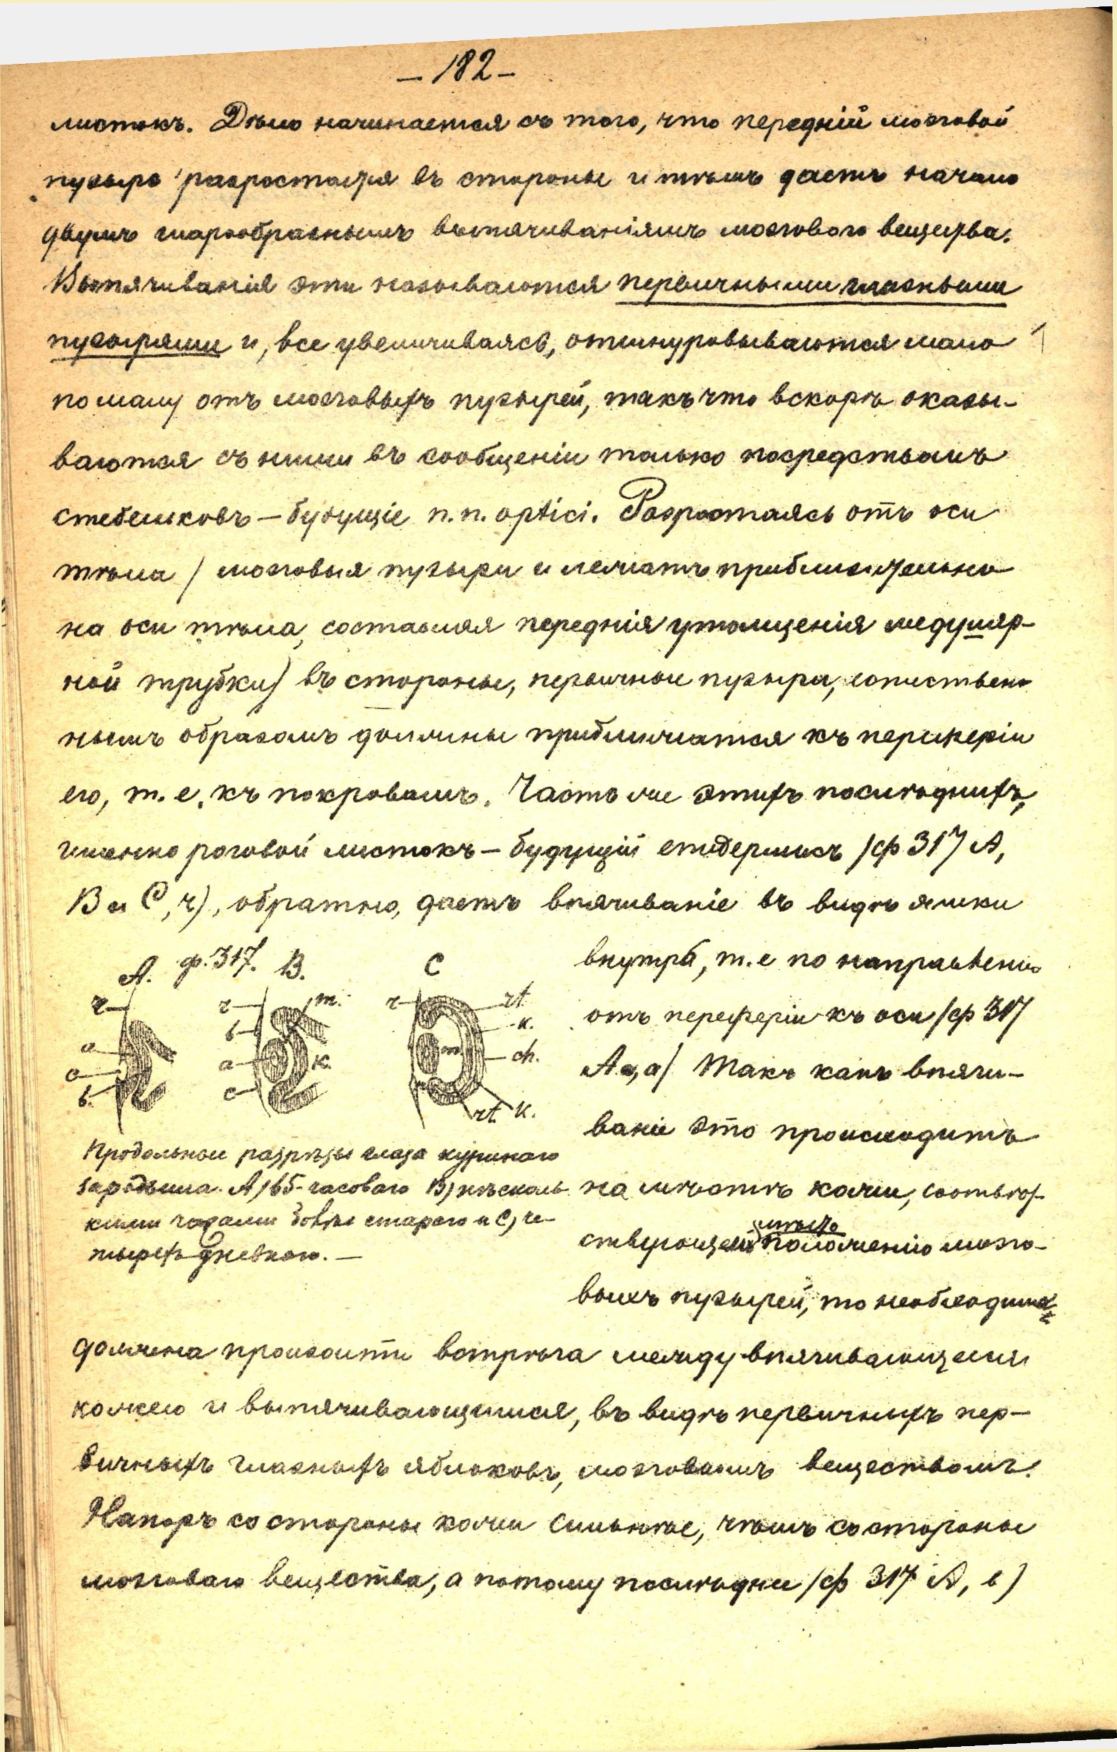 — 182 —
листокъ. Дѣло начинается съ того, что передній мозговой
пузырь разростаtся въ стороны и тѣмъ даетъ начало
двумъ шарообразнымъ вытячиваніямъ мозгового вещества.
Вытячиванія эти называются первичными глазными
пузырями и, все увеличиваясь, отшнуровываются мало
по малу отъ мозговыхъ пузырей, такъ что вскорѣ оказы-
ваются съ ними въ сообщеніи только посредствомъ
стебельковъ — будущіе n. n. optici. Разростаясь отъ оси
тѣла / мозговыя пузыри и лежатъ приблизительно
на оси тѣла, составляя переднія утолщенія медулляр-
ной трубки) въ стороны, первичные пузыри,
нымъ образомъ должны приближатся къ периферіи
его, т. е. къ покровамъ. Часть же этихъ послѣднихъ,
именно роговой листокъ — будущій епидермисъ /ф 317 А,
В и С, ч), обратно, даетъ впячиваніе въ видѣ ямки
А. ф. 317. В. С
ч ч m. ч rt.
a b к. m k.
o a c ch.
b. rt. k.
Продольные разрѣзы глаза куринаго
зародыша. А) 65-часоваго В) нѣсколь-
кими часами болѣе стараго и С) че-
тырехъ дневного. —
внутрь, т. е по направленію
отъ перефѣріи къ оси /ф 317
А, а/ Такъ какъ впячи-
ваніе это происходитъ
на мѣстѣ кожи, соотвѣт-
ствующемъ мѣсто положенію мозго-
выхъ пузырей, то необходимо
должена произоити встрѣча между впячивающеися
кожею и вытячивающимся, въ видѣ первичныхъ пер-
вичныхъ глазныхъ яблоковъ, мозговымъ веществомъ.
Напоръ со стороны кожи сильнѣе, чѣмъ со стороны
мозговаго вещества, а потому послѣднее /ф 317 А, в)